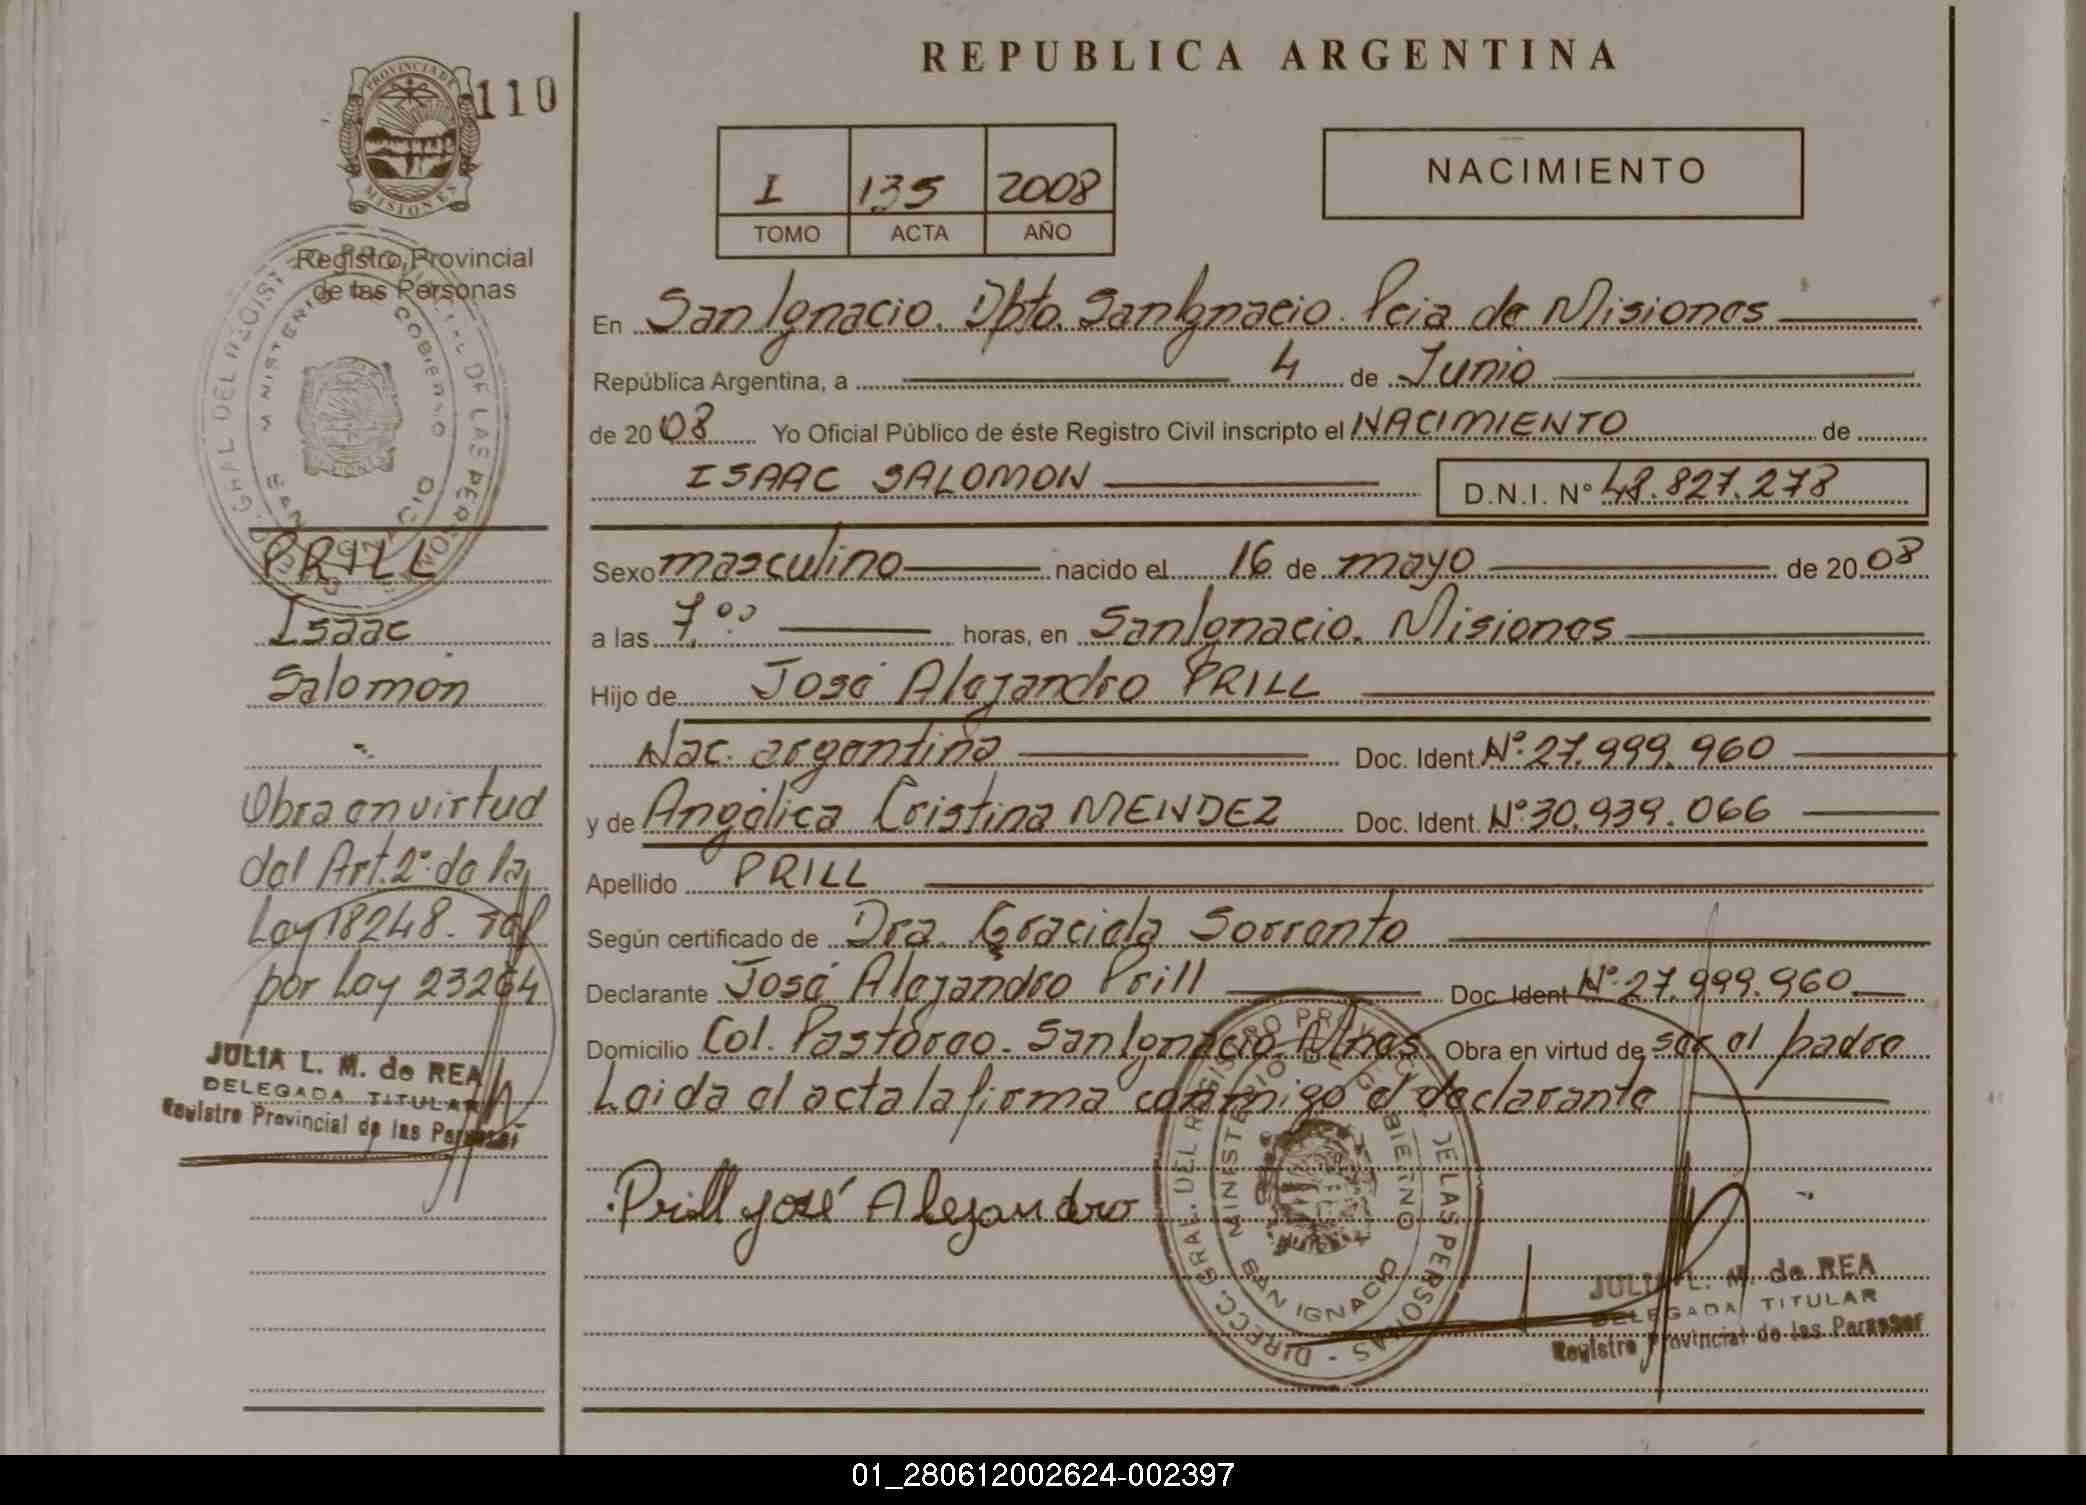 REPUBLICA ARGENTINA
PROVINCIA DE
MISIONES
110
I 135 2008
TOMO ACTA AÑO
NACIMIENTO
Registro Provincial
de las Personas
En San Ignacio. Dpto. San Ignacio. Pcia de Misiones
República Argentina, a 4 de Junio
de 2008 Yo Oficial Público de éste Registro Civil inscripto el NACIMIENTO de
ISAAC SALOMON D.N.I. Nº 48.827.278
Sexo masculino nacido el 16 de mayo de 2008
a las 7,00 horas, en San Ignacio. Misiones
Hijo de José Alejandro PRILL
Nac. argentina Doc. Ident. Nº 27.999.960
y de Angélica Cristina MENDEZ Doc. Ident. Nº 30.939.066
Apellido PRILL
Según certificado de Dra. Graciela Sorrento
Declarante José Alejandro Prill Doc. Ident Nº 27.999.960
Domicilio Col. Pastoreo. San Ignacio Mnes. Obra en virtud de ser el padre
Leida el acta la firma conmigo el declarante
Prill José Alejandro
DIRECC. GRAL. DEL REGISTRO PROVINCIAL DE LAS PERSONAS
MINISTERIO DE GOBIERNO
SAN IGNACIO
JULIA L. M. de REA
DELEGADA TITULAR
Registro Provincial de las Personas
PRILL
Isaac
Salomon
Obra en virtud
del Art. 2º de la
Ley 18248.
por Ley 23264
JULIA L. M. de REA
DELEGADA TITULAR
Registro Provincial de las Personas
01_280612002624-002397